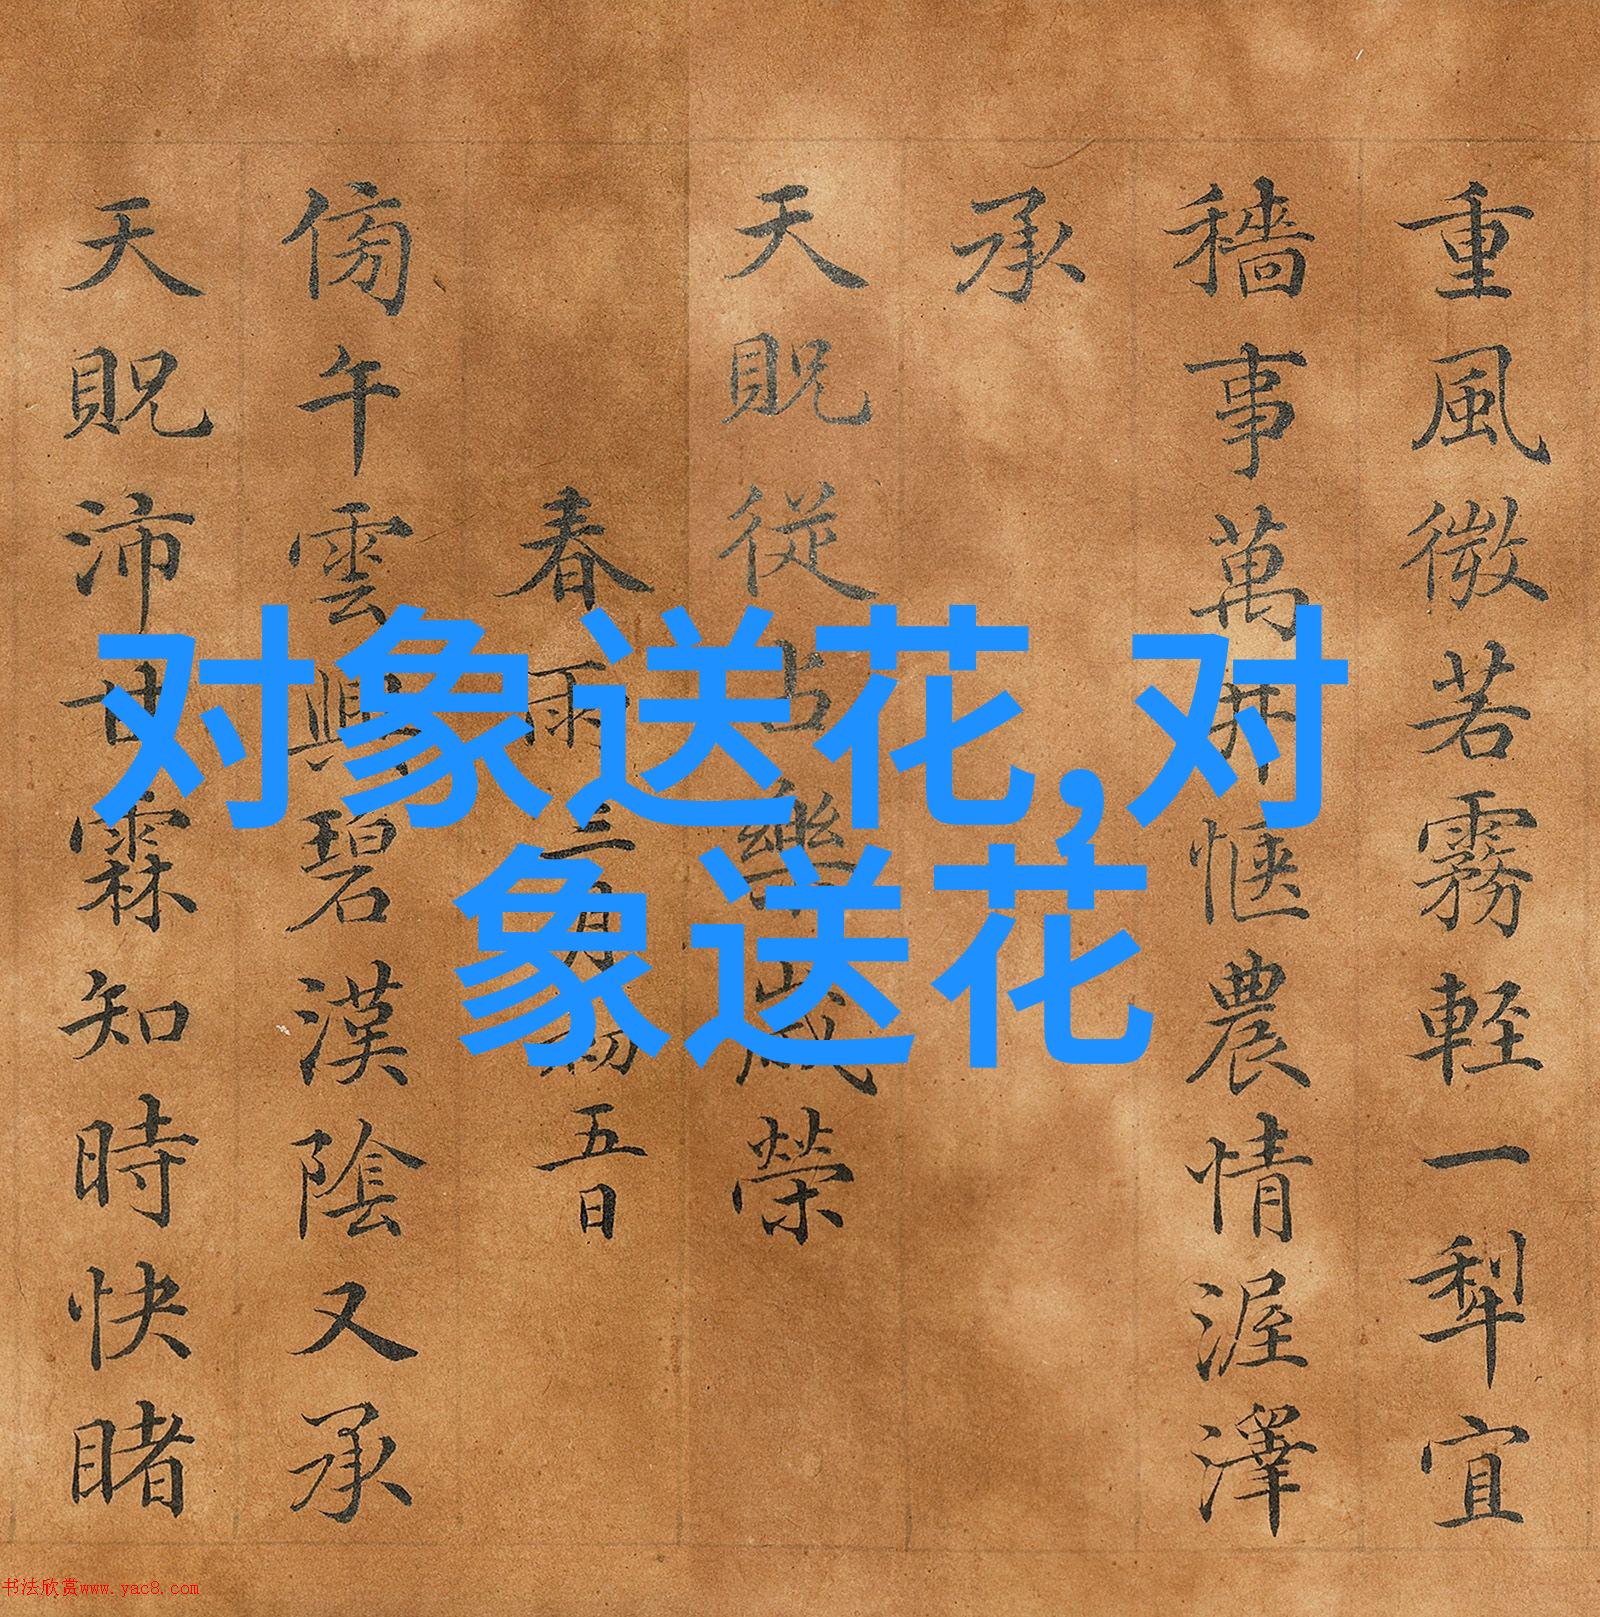 对象送花,对
象送花
重風微若霧輕一犁宜
穡事萬井愜農情渥澤
承
天貺從占樂歲榮
春雨三月初五日
傍午雲興碧漢陰又承
天貺沛甘霖知時快睹
书法欣赏www.yac8.com